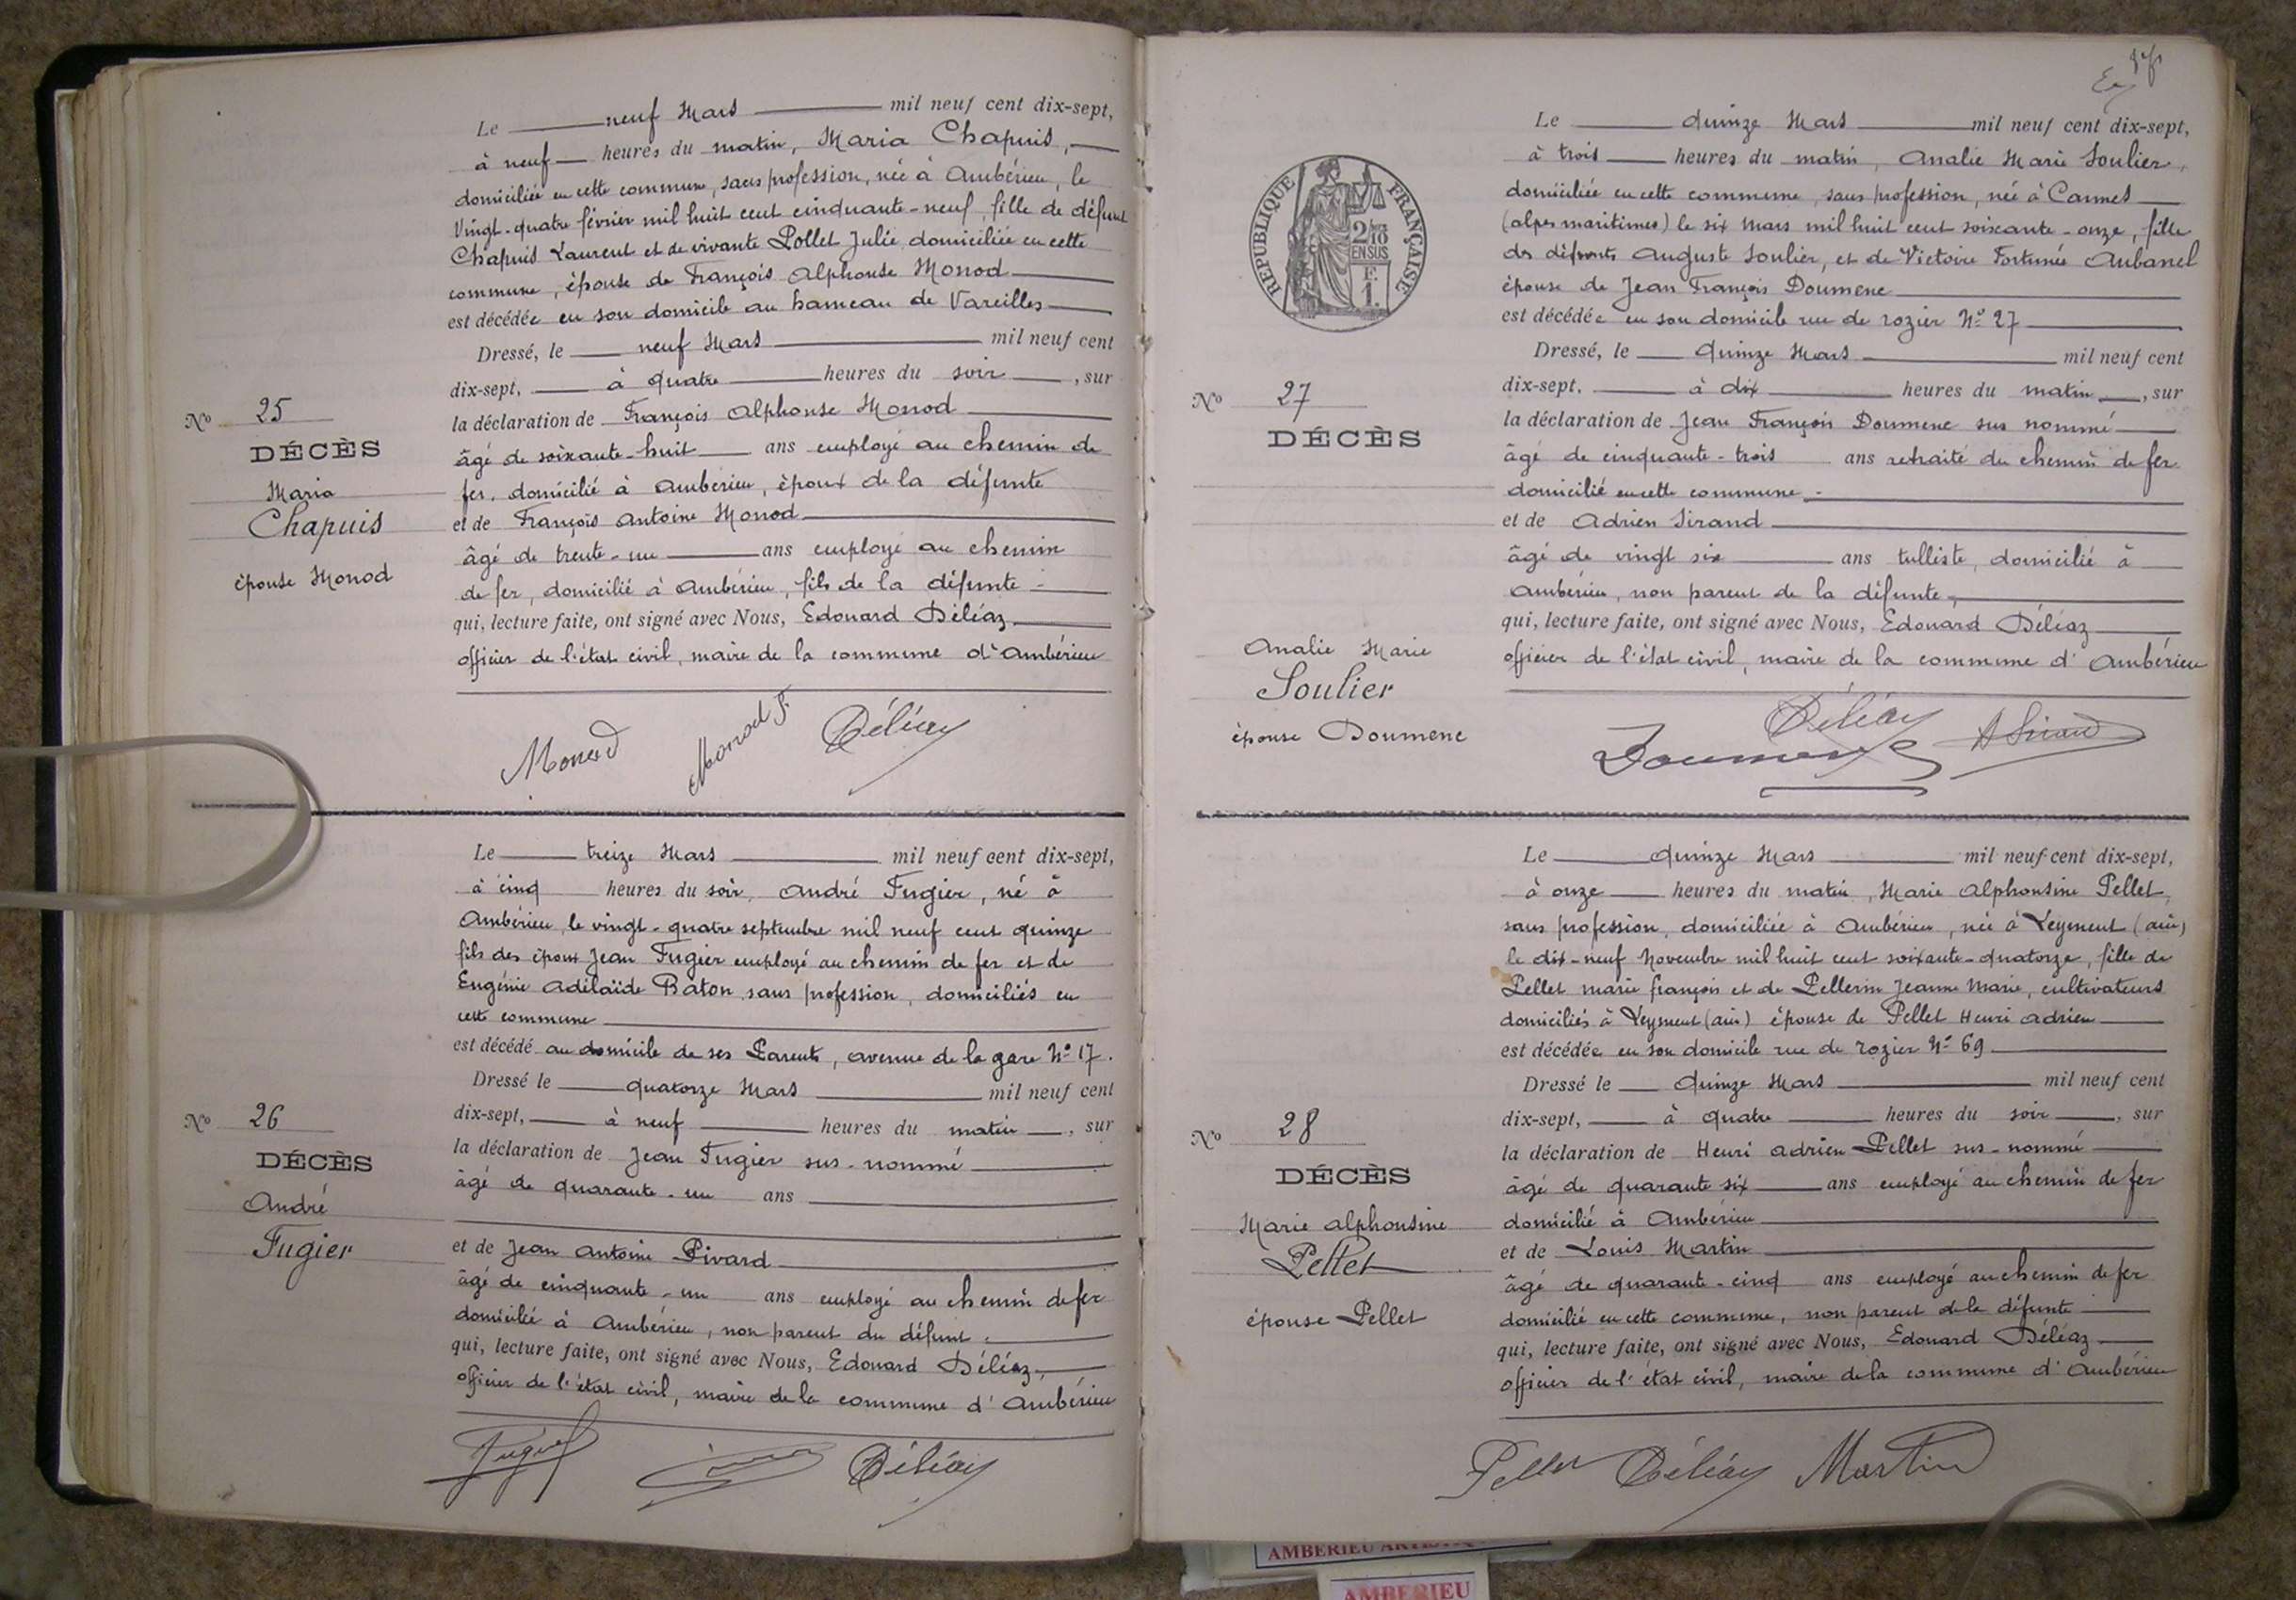 Le neuf Mars mil neuf cent dix-sept,
à neuf heures du matin, Maria Chapuis,
domiciliée en cette commune, sans profession, née à Ambérieu, le
vingt-quatre février mil huit cent cinquante-neuf, fille de défunt
Chapuis Laurent et de vivante Pollet Julie, domiciliée en cette
commune, épouse de François Alphonse Monod
est décédée en son domicile au hameau de Vareilles
Dressé, le neuf Mars mil neuf cent
dix-sept, à quatre heures du soir, sur
la déclaration de François Alphonse Monod
âgé de soixante-huit ans employé au chemin de
fer, domicilié à Ambérieu, époux de la défunte
et de François Antoine Monod
âgé de trente-un ans employé au chemin
de fer, domicilié à Ambérieu, fils de la défunte
qui, lecture faite, ont signé avec Nous, Edouard Déléaz
officier de l'état civil, maire de la commune d'Ambérieu
No 25
DÉCÈS
Maria
Chapuis
épouse Monod
Monod Monod F. Déléaz
Le treize Mars mil neuf cent dix-sept,
à cinq heures du soir, André Fugier, né à
Ambérieu, le vingt-quatre septembre mil neuf cent quinze
fils des époux Jean Fugier employé au chemin de fer et de
Eugénie Adélaïde Baton sans profession, domiciliés en
cette commune
est décédé au domicile de ses Parents, avenue de la gare No 17.
Dressé le quatorze Mars mil neuf cent
dix-sept, à neuf heures du matin, sur
la déclaration de Jean Fugier sus-nommé
âgé de quarante-un ans
et de Jean Antoine Pivard
âgé de cinquante-un ans employé au chemin de fer
domicilié à Ambérieu, non parent du défunt.
qui, lecture faite, ont signé avec Nous, Edouard Déléaz,
officier de l'état civil, maire de la commune d'Ambérieu
No 26
DÉCÈS
André
Fugier
Fugier Déléaz
Le quinze Mars mil neuf cent dix-sept,
à trois heures du matin, Analie Marie Soulier,
domiciliée en cette commune, sans profession, née à Cannes
(alpes maritimes) le six Mars mil huit cent soixante-onze, fille
des défunts Auguste Soulier, et de Victoire Fortunée Aubanel
épouse de Jean François Doumenc
est décédée en son domicile rue de rozier No 27
Dressé, le quinze Mars mil neuf cent
dix-sept, à dix heures du matin, sur
la déclaration de Jean François Doumenc sus nommé
âgé de cinquante-trois ans retraité du chemin de fer
domicilié en cette commune.
et de Adrien Sirand
âgé de vingt six ans tulliste, domicilié à
Ambérieu, non parent de la défunte,
qui, lecture faite, ont signé avec Nous, Edouard Déléaz
officier de l'état civil, maire de la commune d'Ambérieu
RÉPUBLIQUE FRANÇAISE
2/10
EN SUS
F.
1.
No 27
DÉCÈS
Analie Marie
Soulier
épouse Doumenc
Déléaz
Doumenc A Sirand
Le quinze Mars mil neuf cent dix-sept,
à onze heures du matin, Marie Alphonsine Pellet,
sans profession, domiciliée à Ambérieu, née à Leyment (ain)
le dix-neuf Novembre mil huit cent soixante-quatorze, fille de
Pellet marie françois et de Pellerin Jeanne Marie, cultivateurs
domiciliés à Leyment (ain) épouse de Pellet Henri adrien
est décédée en son domicile rue de rozier No 69
Dressé le quinze Mars mil neuf cent
dix-sept, à quatre heures du soir, sur
la déclaration de Henri adrien Pellet sus-nommé
âgé de quarante six ans employé au chemin de fer
domicilié à Ambérieu
et de Louis Martin
âgé de quarante-cinq ans employé au chemin de fer
domicilié en cette commune, non parent de la défunte
qui, lecture faite, ont signé avec Nous, Edouard Déléaz
officier de l'état civil, maire de la commune d'Ambérieu
No 28
DÉCÈS
Marie alphonsine
Pellet
épouse Pellet
Pellet Déléaz Martin
AMBERIEU